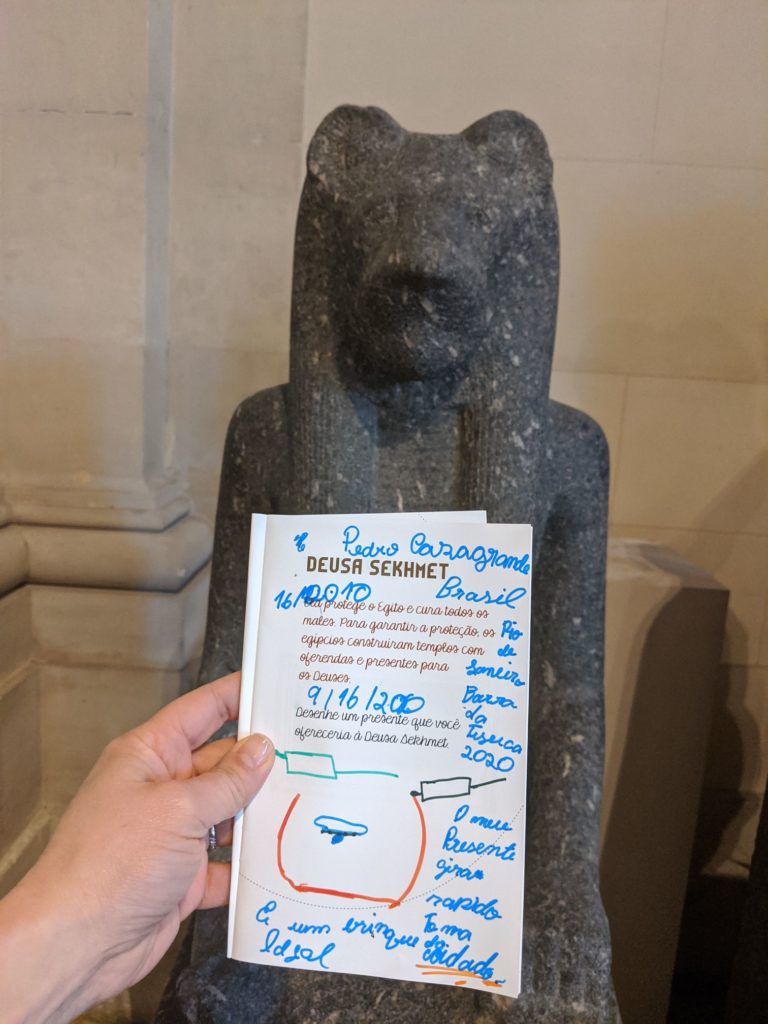 Pedro Cazagrande
DEUSA SEKHMET
Brasil
16/
2010
protege o Egito e cura todos os
males. Para garantir a proteção, os
egípcios construíram templos com
oferendas e presentes para
os Deuses.
Rio
de
Janeiro
Barra
da
Tijuca
2020
9/16/200
Desenhe um presente que você
ofereceria à Deusa Sekhmet.
O meu
Presente
gira
rapido
Toma
cuidado
É um brinque